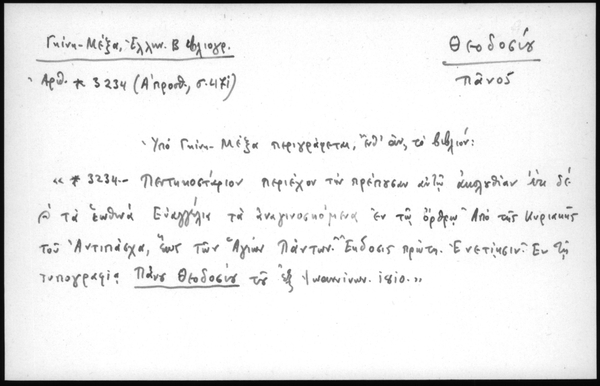 Γκίνη-Μέξα, Ἑλλην. Βιβλιογρ.
Θεοδοσίου
Ἀριθ. * 3234 (Α' προσθ., σ. 47)
Πάνος
Ὑπό Γκίνη-Μέξα περιγράφεται, τό βιβλίον:
« * 3234.- Πεντηκοστάριον περιέχον τήν πρέπουσαν αὐτῷ ἀκολουθίαν ἔτι δέ
τά ἑωθινά Εὐαγγέλια τά ἀναγινοσκόμενα ἐν τῷ ὄρθρῳ Ἀπό τῆς Κυριακῆς
τοῦ Ἀντιπάσχα, ἕως τῶν Ἁγίων Πάντων. Ἔκδοσις πρώτη. Ἐνετίησιν. Ἐν τῇ
τυπογραφίᾳ Πάνου Θεοδοσίου τοῦ ἐξ Ἰωαννίνων. 1810.»